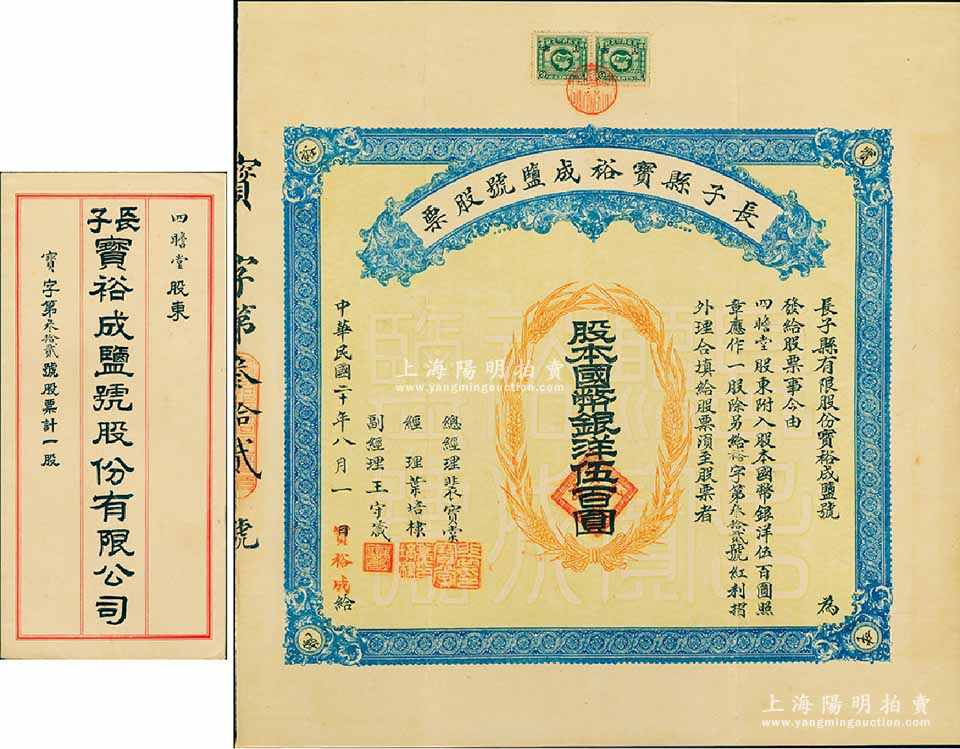 四瞻堂股東
長子寶裕成鹽號股份有限公司
寶字第叁拾貳號股票計一股
寶字第叁拾貳號
長子縣寶裕成鹽號股票
長子縣有限股份寶裕成鹽號 為
發給股票事今由
四瞻堂股東附入股本國幣銀洋伍百圓照
章應作一股除另給裕字第叁拾貳號紅利摺
外理合填給股票須至股票者
股本國幣銀洋伍百圓
總經理裴寶棠
經理葉培棣
副經理王守箴
中華民國二十年八月一日寶裕成給
上海陽明拍賣
www.yangmingauction.com
上海陽明拍賣
www.yangmingauction.com